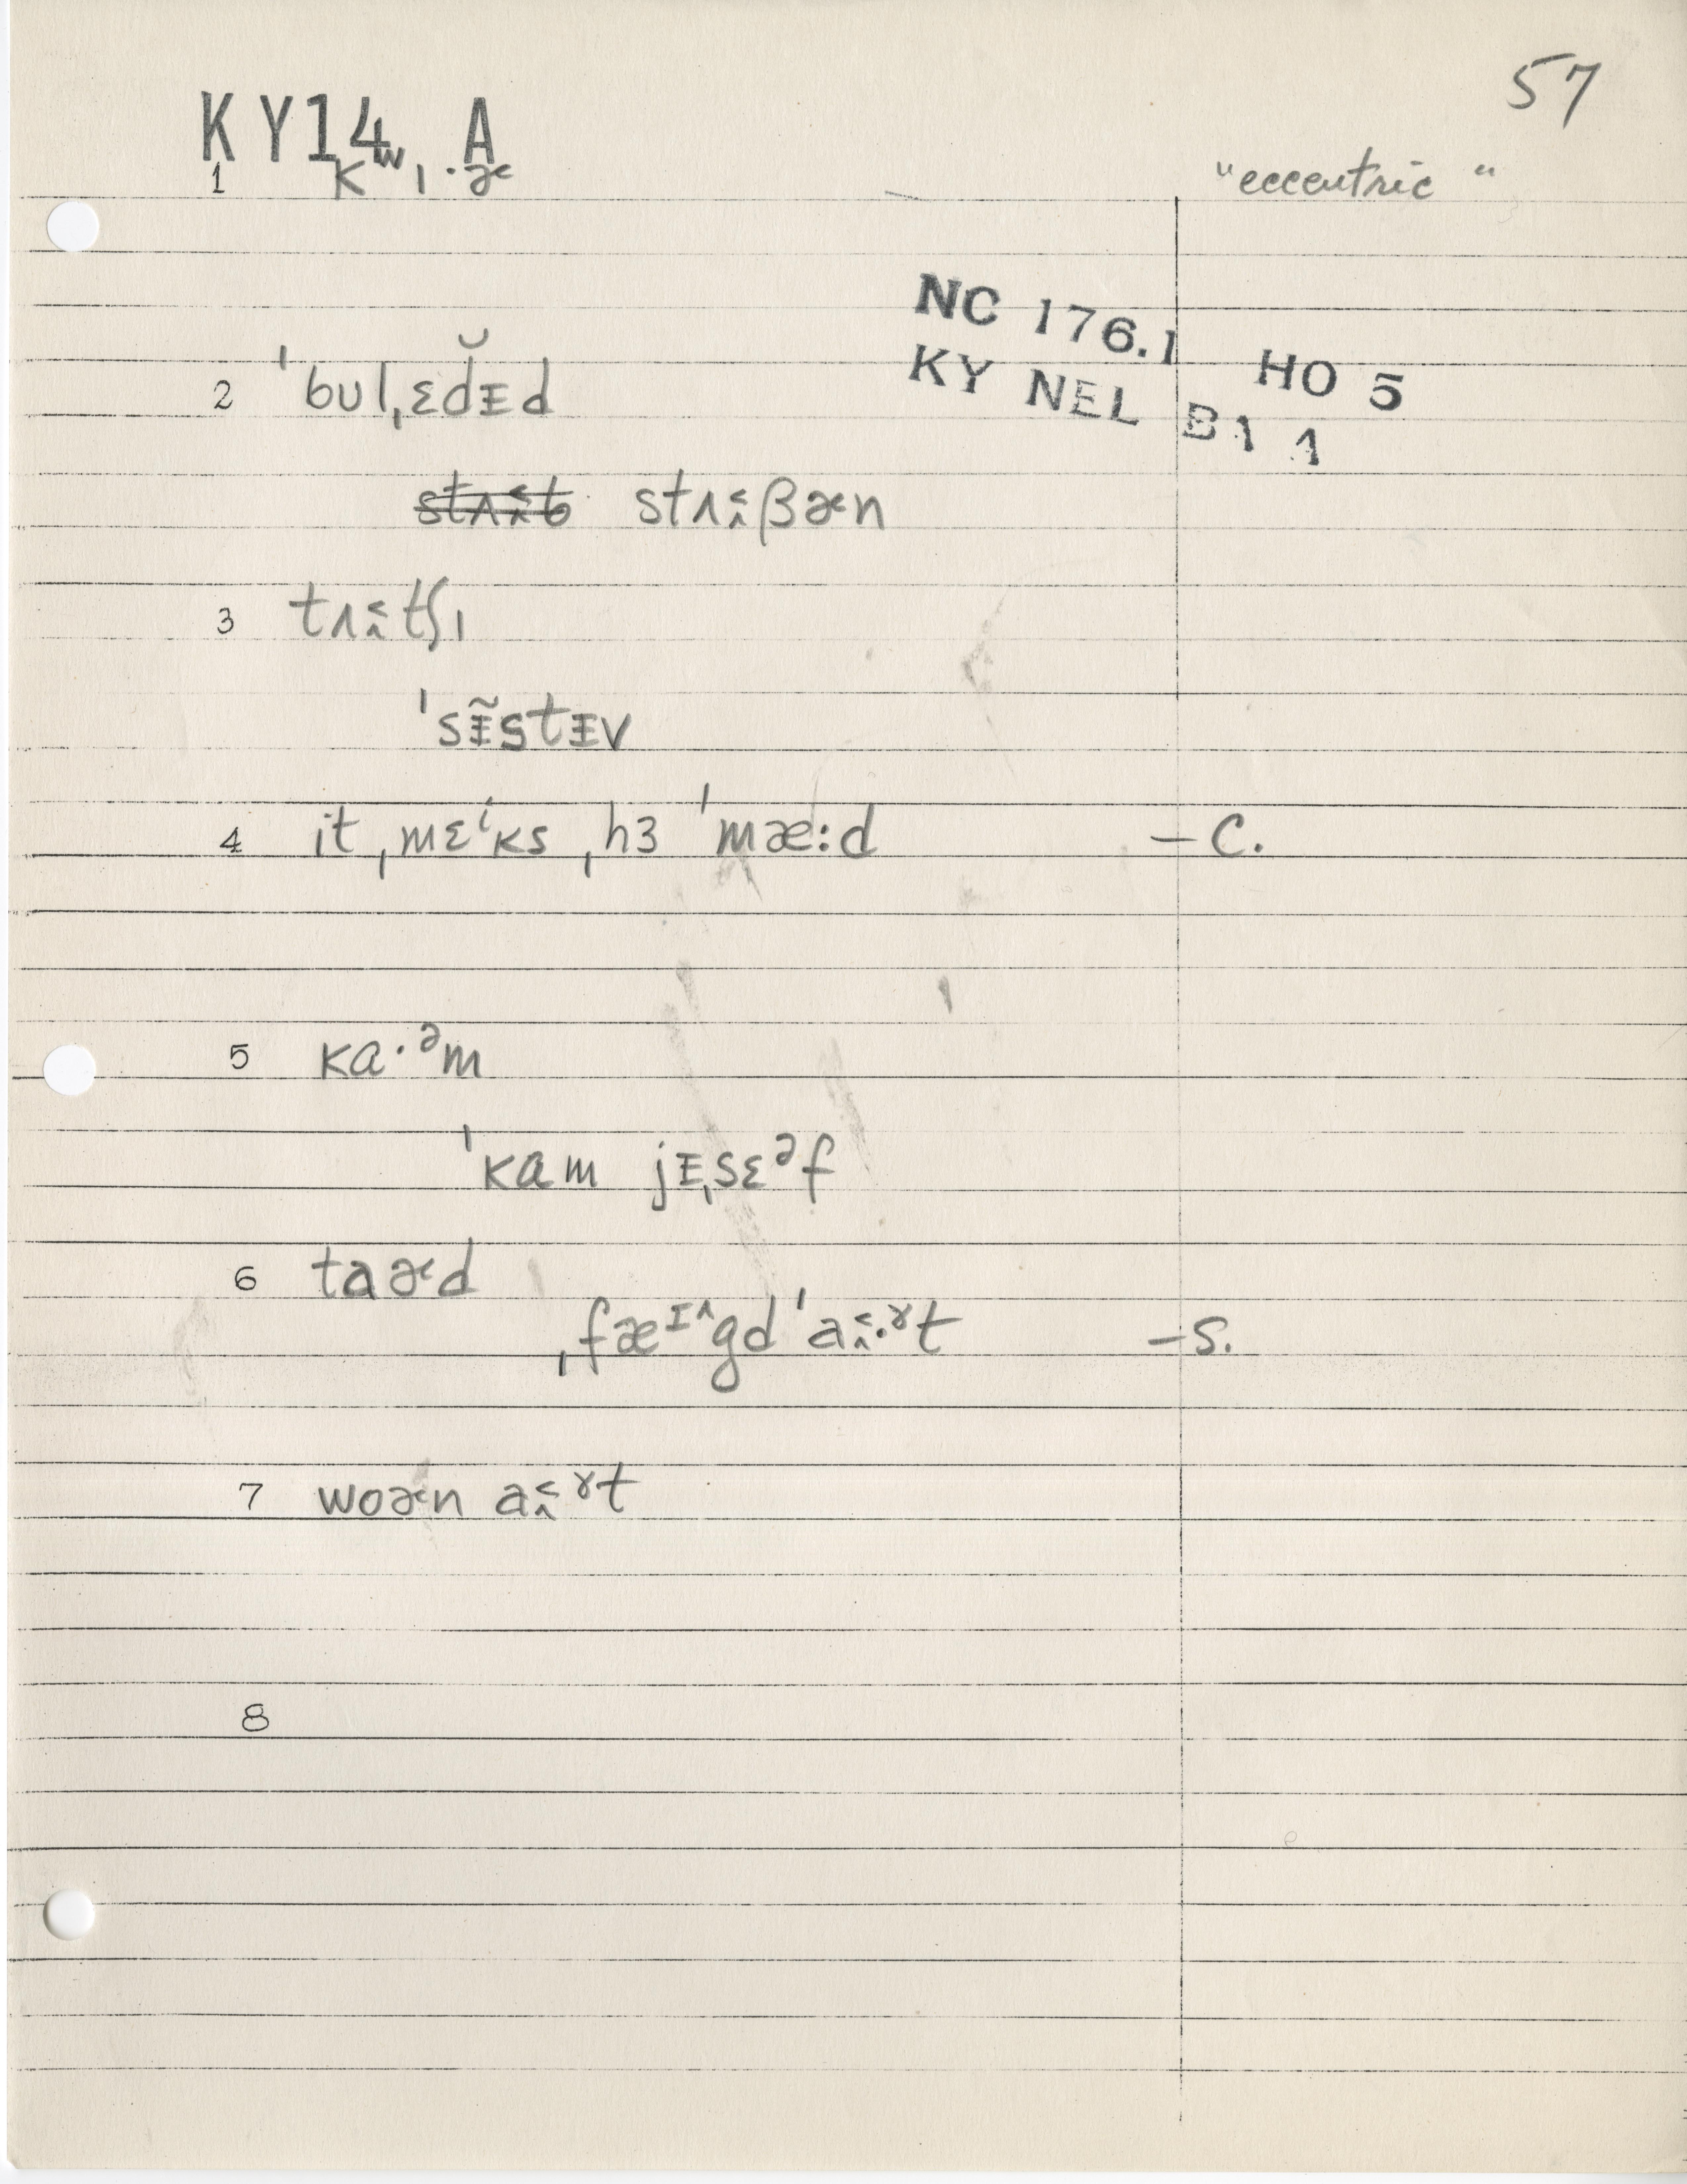 57
KY14 A
1 kʷɪ·ɚ "eccentric"
NC 176.1 HO 5
KY NEL B1 1
2 ˈbulˌɛd̆ᵻd
stʌ˂̭b stʌ˂̭βɚn
3 tʌ˂̭tʃɪ
ˈsᵻ̃stᵻv
4 it ˌmɛⁱks ˌhɜ ˈmæ:d —C.
5 kɑ·ᵊm
ˈkɑm jᵻˌsɛᵊf
6 taɚd
ˌfæᶦ˄gd ˈa˂̭·ˠt —S.
7 woɚn a˂̭ˠt
8